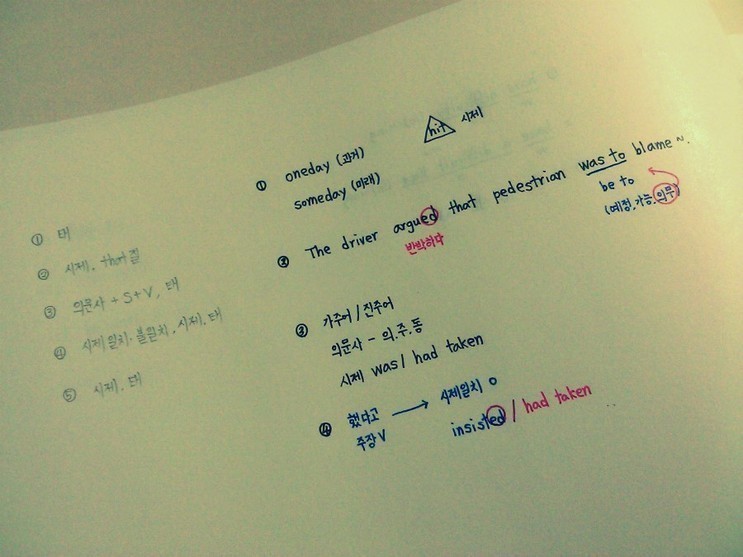 ① 태
② 시제, that절
③ 의문사 + S+V, 태
④ 시제일치·불일치, 시제, 태
⑤ 시제, 태
① oneday (과거)
someday (미래)
hit 시제
② The driver argued that pedestrian was to blame ~.
반박하다
be to
(예정, 가능, 의무)
③ 가주어 / 진주어
의문사 - 의.주.동
시제 was / had taken
④ 했다고 → 시제일치 o
주장 V insisted / had taken